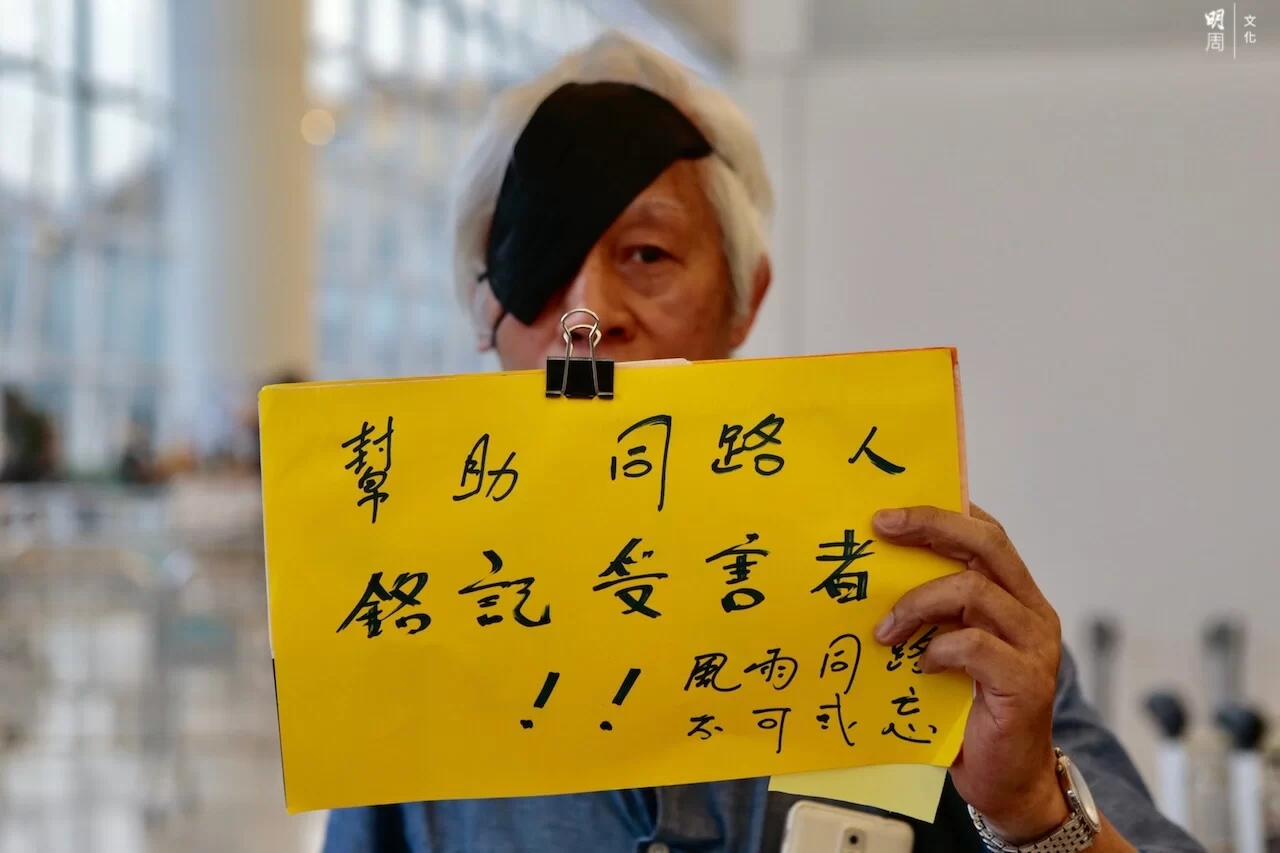 明周 文化
幫助同路人
銘記受害者
!! 風雨同路
不可或忘